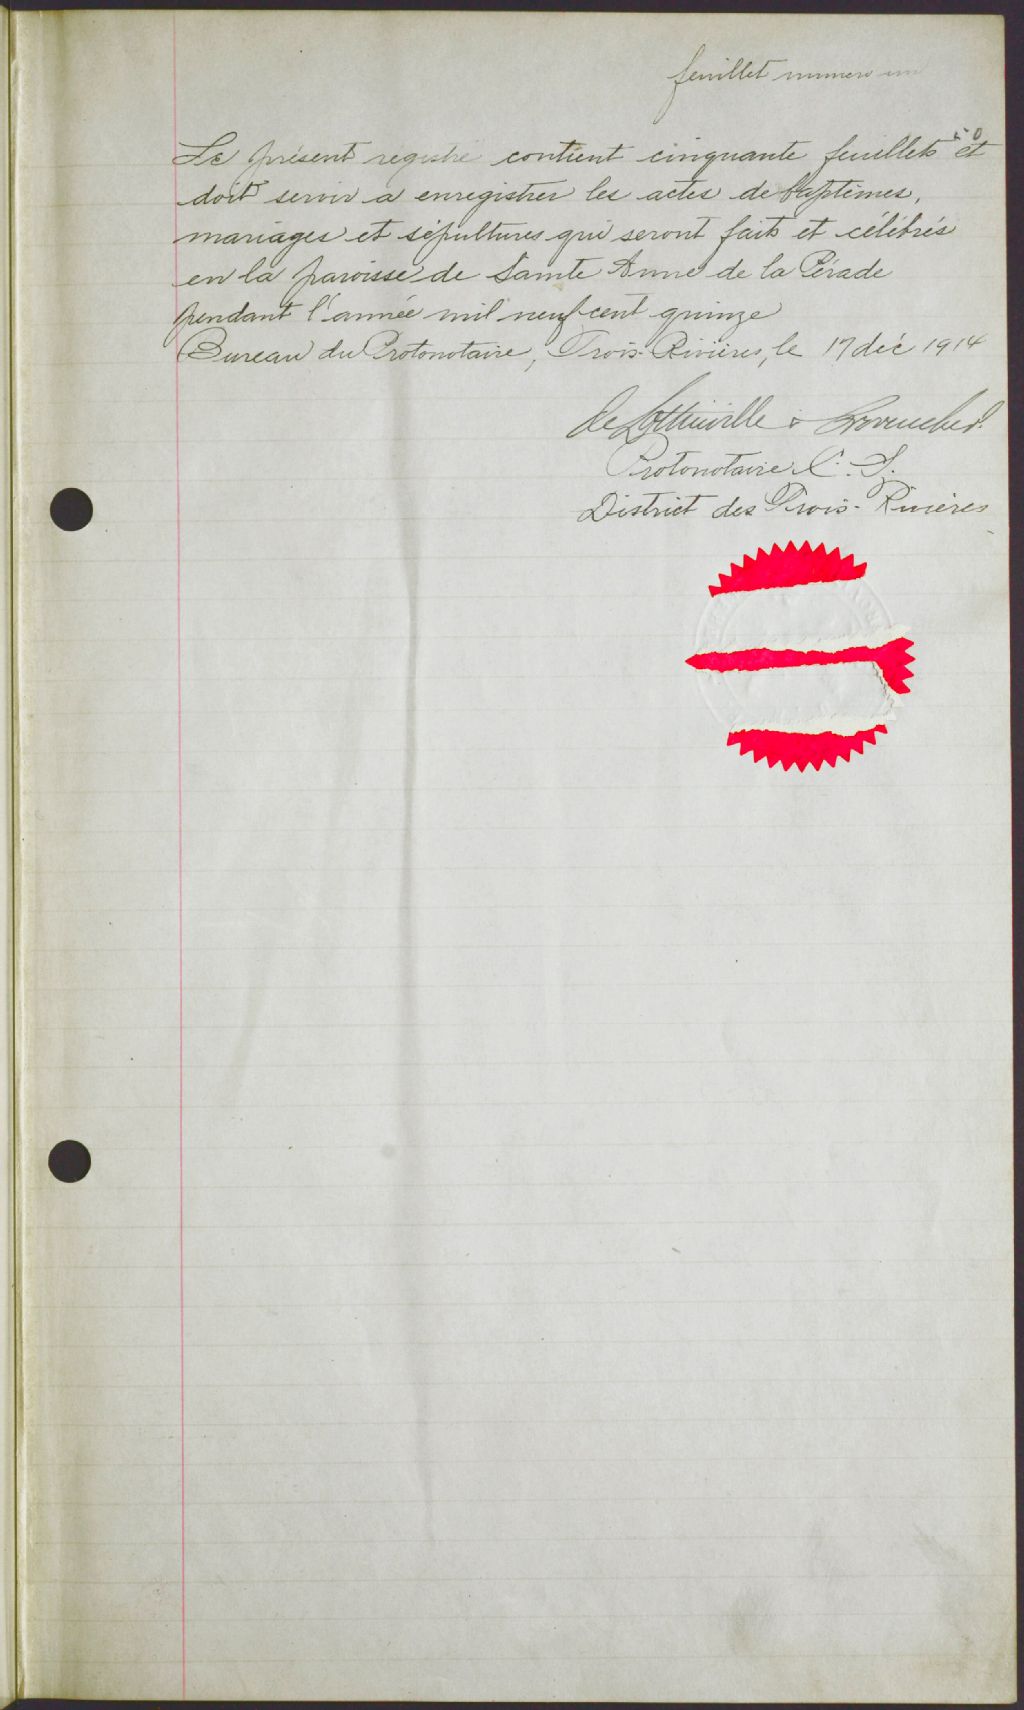 feuillet numero un
50
Le présent registre contient cinquante feuillets et
doit servir a enregistrer les actes de baptêmes,
mariages et sépultures qui seront faits et célébrés
en la paroisse de Sainte Anne de la Pérade
pendant l'année mil neuf cent quinze
Bureau du Protonotaire, Trois-Rivières, le 17 déc 1914
de Lottinville &
Protonotaire C. S.
District des Trois-Rivières